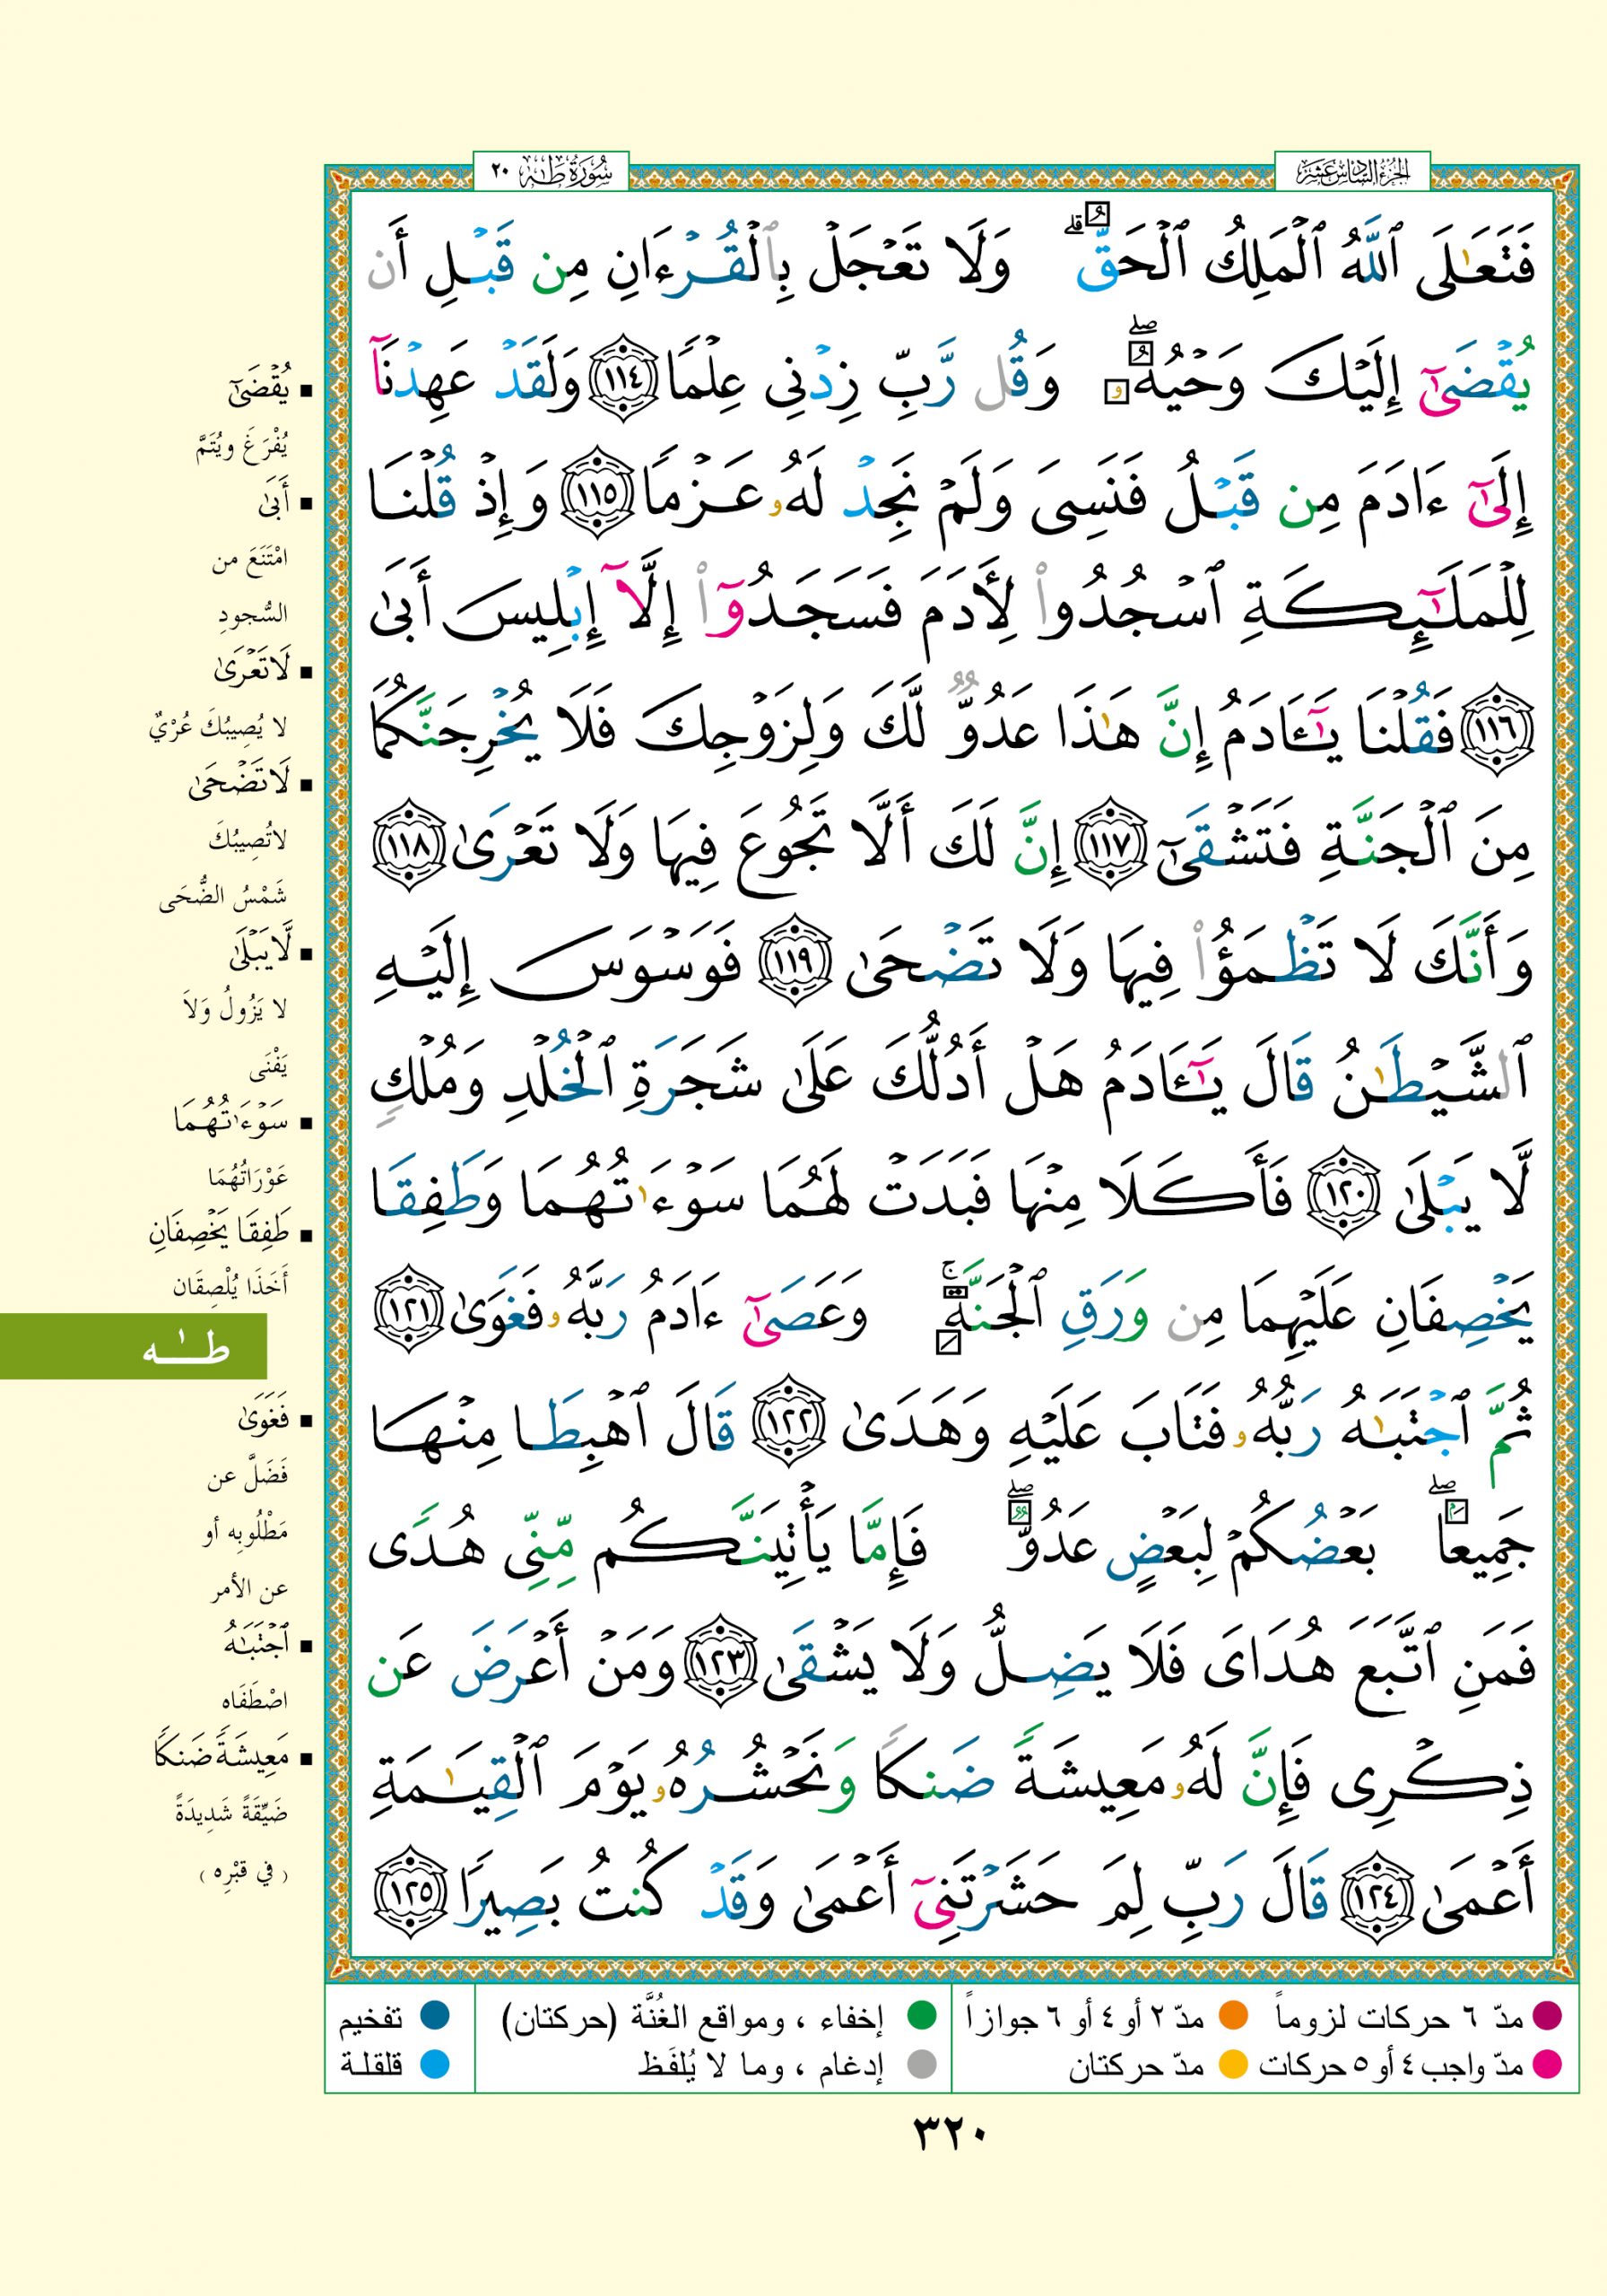 الجزء السادس عشر
سورة طه ٢٠
فَتَعَٰلَى ٱللَّهُ ٱلْمَلِكُ ٱلْحَقُّ ۗ وَلَا تَعْجَلْ بِٱلْقُرْءَانِ مِن قَبْلِ أَن
يُقْضَىٰٓ إِلَيْكَ وَحْيُهُۥ ۖ وَقُل رَّبِّ زِدْنِى عِلْمًا ١١٤ وَلَقَدْ عَهِدْنَآ
إِلَىٰٓ ءَادَمَ مِن قَبْلُ فَنَسِىَ وَلَمْ نَجِدْ لَهُۥ عَزْمًا ١١٥ وَإِذْ قُلْنَا
لِلْمَلَٰٓئِكَةِ ٱسْجُدُوا۟ لِأَدَمَ فَسَجَدُوٓا۟ إِلَّآ إِبْلِيسَ أَبَىٰ
١١٦ فَقُلْنَا يَٰٓـَٔادَمُ إِنَّ هَٰذَا عَدُوٌّ لَّكَ وَلِزَوْجِكَ فَلَا يُخْرِجَنَّكُمَا
مِنَ ٱلْجَنَّةِ فَتَشْقَىٰٓ ١١٧ إِنَّ لَكَ أَلَّا تَجُوعَ فِيهَا وَلَا تَعْرَىٰ ١١٨
وَأَنَّكَ لَا تَظْمَؤُا۟ فِيهَا وَلَا تَضْحَىٰ ١١٩ فَوَسْوَسَ إِلَيْهِ
ٱلشَّيْطَٰنُ قَالَ يَٰٓـَٔادَمُ هَلْ أَدُلُّكَ عَلَىٰ شَجَرَةِ ٱلْخُلْدِ وَمُلْكٍ
لَّا يَبْلَىٰ ١٢٠ فَأَكَلَا مِنْهَا فَبَدَتْ لَهُمَا سَوْءَٰتُهُمَا وَطَفِقَا
يَخْصِفَانِ عَلَيْهِمَا مِن وَرَقِ ٱلْجَنَّةِ ۚ وَعَصَىٰٓ ءَادَمُ رَبَّهُۥ فَغَوَىٰ ١٢١
ثُمَّ ٱجْتَبَٰهُ رَبُّهُۥ فَتَابَ عَلَيْهِ وَهَدَىٰ ١٢٢ قَالَ ٱهْبِطَا مِنْهَا
جَمِيعًۢا ۖ بَعْضُكُمْ لِبَعْضٍ عَدُوٌّ ۖ فَإِمَّا يَأْتِيَنَّكُم مِّنِّى هُدًى
فَمَنِ ٱتَّبَعَ هُدَاىَ فَلَا يَضِلُّ وَلَا يَشْقَىٰ ١٢٣ وَمَنْ أَعْرَضَ عَن
ذِكْرِى فَإِنَّ لَهُۥ مَعِيشَةً ضَنكًا وَنَحْشُرُهُۥ يَوْمَ ٱلْقِيَٰمَةِ
أَعْمَىٰ ١٢٤ قَالَ رَبِّ لِمَ حَشَرْتَنِىٓ أَعْمَىٰ وَقَدْ كُنتُ بَصِيرًا ١٢٥
▪ يُقْضَىٰٓ
يُفْرَغَ ويُتَمَّ
▪ أَبَىٰ
امْتَنَعَ من
السُّجودِ
▪ لَا تَعْرَىٰ
لا يُصِيبُكَ عُرْيٌ
▪ لَا تَضْحَىٰ
لا تُصِيبُكَ
شَمْسُ الضُّحَى
▪ لَّا يَبْلَىٰ
لا يَزُولُ وَلَا
يَفْنَى
▪ سَوْءَٰتُهُمَا
عَوْرَاتُهُمَا
▪ طَفِقَا يَخْصِفَانِ
أَخَذَا يُلْصِقَان
طــٰه
▪ فَغَوَىٰ
فَضَلَّ عن
مَطْلُوبِه أو
عن الأمر
▪ ٱجْتَبَٰهُ
اصْطَفَاه
▪ مَعِيشَةً ضَنكًا
ضَيِّقَةً شَدِيدَةً
(في قبْرِه)
مدّ ٦ حركات لزوماً
مدّ ٢ أو ٤ أو ٦ جوازاً
إخفاء ، ومواقع الغُنَّة (حركتان)
تفخيم
مدّ واجب ٤ أو ٥ حركات
مدّ حركتان
إدغام ، وما لا يُلفَظ
قلقلة
٣٢٠